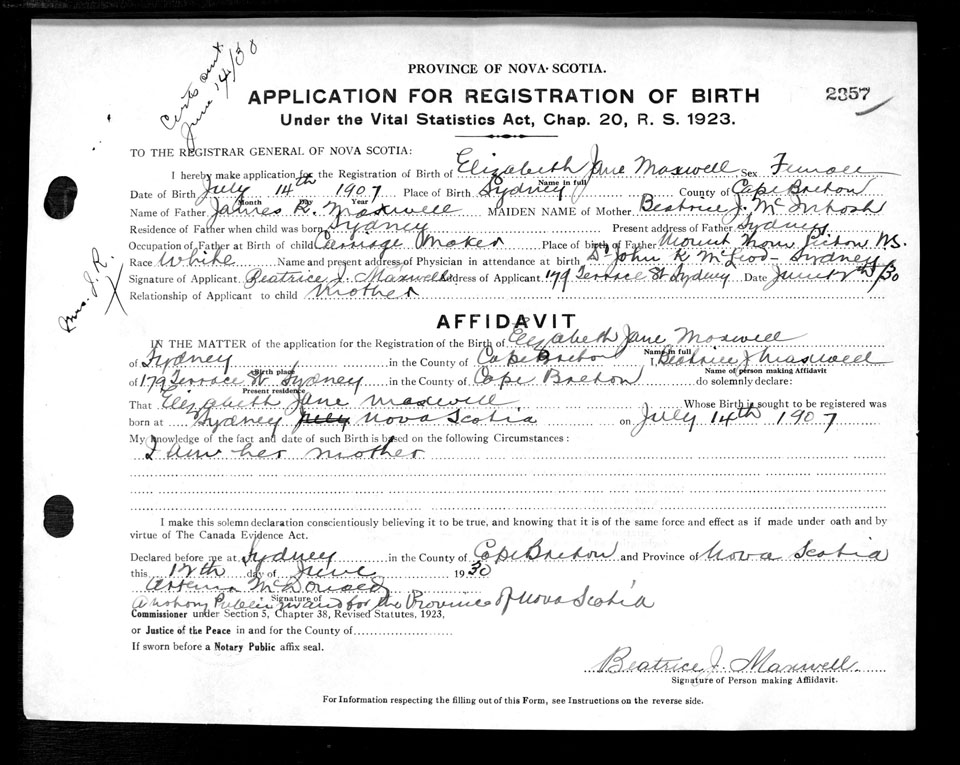 Certs sent
June 14/30
PROVINCE OF NOVA-SCOTIA.
APPLICATION FOR REGISTRATION OF BIRTH
2357
Under the Vital Statistics Act, Chap. 20, R. S. 1923.
TO THE REGISTRAR GENERAL OF NOVA SCOTIA:
I hereby make application for the Registration of Birth of Elizabeth Jane Maxwell Sex Female
Name in full
Date of Birth July 14th 1907 Place of Birth Sydney County of Cape Breton
Month Day Year
Name of Father James R. Maxwell MAIDEN NAME of Mother Beatrice J. McIntosh
Residence of Father when child was born Sydney Present address of Father Sydney
Occupation of Father at Birth of child Carriage Maker Place of birth of Father Mount Thom Pictou NS.
Race White Name and present address of Physician in attendance at birth Dr John K McLeod - Sydney
Signature of Applicant Beatrice J. Maxwell Address of Applicant 179 Terrace St Sydney Date June 12th/30
Relationship of Applicant to child Mother
Mrs. J. R.
X
AFFIDAVIT
IN THE MATTER of the application for the Registration of the Birth of Elizabeth Jane Maxwell
Name in full
of Sydney in the County of Cape Breton I, Beatrice J Maxwell
Birth place
Name of person making Affidavit
of 179 Terrace St Sydney in the County of Cape Breton do solemnly declare:
Present residence
That Elizabeth Jane Maxwell Whose Birth is sought to be registered was
born at Sydney July Nova Scotia on July 14th 1907
My knowledge of the fact and date of such Birth is based on the following Circumstances:
I am her mother
I make this solemn declaration conscientiously believing it to be true, and knowing that it is of the same force and effect as if made under oath and by
virtue of The Canada Evidence Act.
Declared before me at Sydney in the County of Cape Breton and Province of Nova Scotia
this 12th day of June 1930
McDonald
Signature of
A Notary Public in and for the Province of Nova Scotia
Commissioner under Section 5, Chapter 38, Revised Statutes, 1923,
or Justice of the Peace in and for the County of
If sworn before a Notary Public affix seal.
Beatrice J. Maxwell
Signature of Person making Affidavit.
For Information respecting the filling out of this Form, see Instructions on the reverse side.